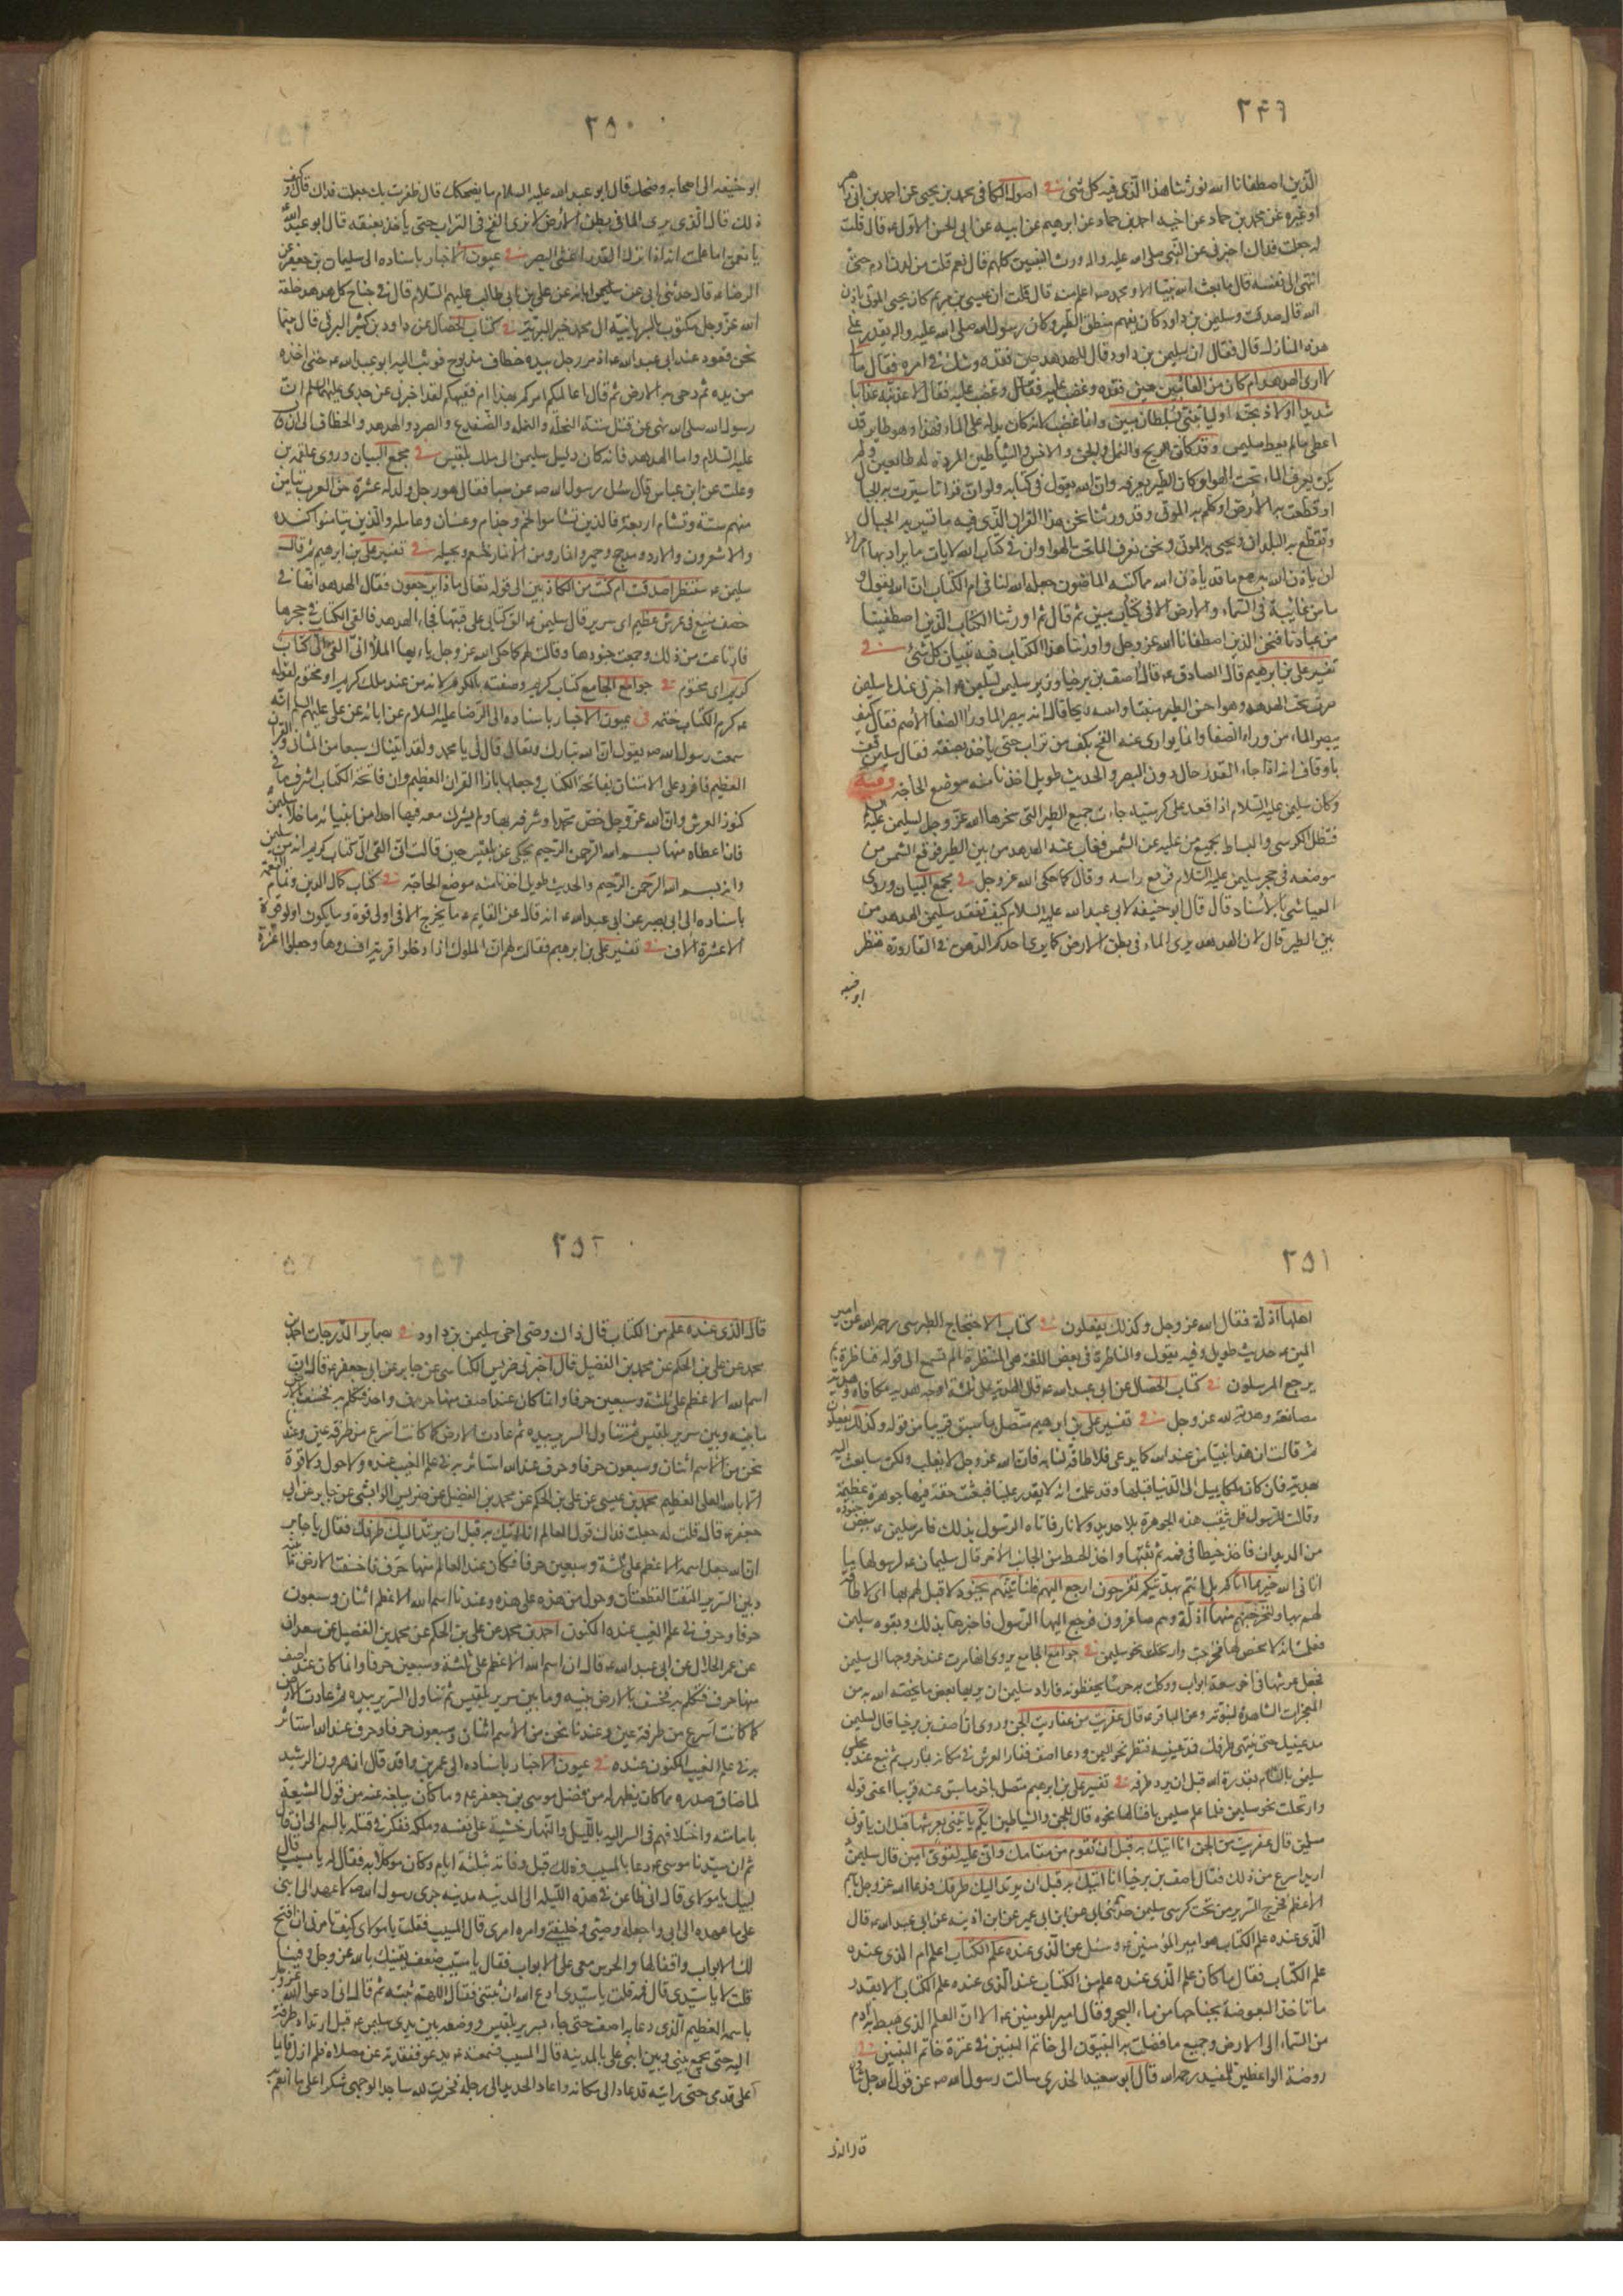 ٢٤٩
الذين اصطفانا الله نورثنا هذا الذى فيه كل شئ فى اصول الكافى محمد بن يحيى عن احمد بن ابى زاهر
او غيره عن محمد بن حماد عن اخيه احمد بن حماد عن ابرهيم عن ابيه عن ابى الحسن الاول ع قال قلت
له جعلت فداك اخبرنى عن النبى صلى الله عليه واله ورث النبيين كلهم قال نعم قلت من لدن ادم حتى
انتهى الى نفسه قال ما بعث الله نبيا الا ومحمد ص اعلم منه قال قلت ان عيسى بن مريم كان يحيى الموتى باذن
الله قال صدقت وسليمن بن داود كان يفهم منطق الطير وكان رسول الله صلى الله عليه واله يقدر على
هذه المنازل قال فقال ان سليمن بن داود قال للهدهد حين فقده وشك فى امره فقال ما
لا ارى الهدهد ام كان من الغائبين حين فقده وغضب عليه فقال وغضب عليه فقال لاعذبنه عذابا
شديدا او لاذبحنه او ليأتينى بسلطان مبين وانما غضب لانه كان يدله على الماء فهذا وهو طاير قد
اعطى ما لم يعط سليمن وقد كانت الريح والنمل والجن والانس والشياطين المردة له طائعين ولم
يكن يعرف الماء تحت الهوا وكان الطير يعرفه وان الله يقول فى كتابه ولو ان قرانا سيرت به الجبال
او قطعت به الارض او كلم به الموتى وقد ورثنا نحن هذا القران الذى فيه ما تسير به الجبال
وتقطع به البلدان وتحيى به الموتى ونحن نعرف الما تحت الهوا وان فى كتاب الله لايات ما يراد بها امر الا
ان ياذن الله به مع ما قد ياذن الله مما كتبه الماضون جعله الله لنا فى ام الكتاب ان الله يقول و
ما من غائبة فى السماء والارض الا فى كتاب مبين ثم قال ثم اورثنا الكتاب الذين اصطفينا
من عبادنا فنحن الذين اصطفانا الله عز وجل واورثنا هذا الكتاب فيه تبيان كل شئ فى
تفسير على بن ابرهيم قال الصادق ع قال اصف بن برخيا وزير سليمن لسليمن ع اخبرنى عنك يا سليمن
صرت تحب الهدهد وهو اخس الطير منبتا وانتنه ريحا قال انه يبصر الماء وراء الصفا الاصم فقال كيف
يبصر الماء من وراء الصفا وانما يوارى عنه الفخ بكف من تراب حتى ياخذ بعنقه فقال سليمن قف
يا وقاف انه اذا جاء القدر حال دون البصر والحديث طويل اخذنا منه موضع الحاجة وفيه
وكان سليمن عليه السلام اذا قعد على كرسيه جاءت جميع الطير التى سخرها الله عز وجل لسليمن عليه السلم
فتظل الكرسى والبساط بجميع من عليه عن الشمس فغاب عنه الهدهد من بين الطير فوقع الشمس من
موضعه فى حجر سليمن عليه السلام فرفع راسه وقال كما حكى الله عز وجل فى مجمع البيان وروى
العياشى بالاسناد قال قال ابو حنيفه لابى عبد الله عليه السلام كيف تفقد سليمن الهدهد من
بين الطير قال لان الهدهد يرى الماء فى بطن الارض كما يرى احدكم الدهن فى القارورة فنظر
ابو حنيفه
٢٥٠
ابو حنيفه الى اصحابه وضحك قال ابو عبد الله عليه السلام ما يضحكك قال ظفرت بك جعلت فداك قال وكيف
ذلك قال الذى يرى الما فى بطن الارض لا يرى الفخ فى التراب حتى يأخذ بعنقه قال ابو عبد الله
يا نعمن اما علمت انه اذا نزل القدر اغشى البصر فى عيون الاخبار باسناده الى سليمان بن جعفر عن
الرضا ع قال حدثنى ابى عن ابائه عن على بن ابى طالب عليهم السلام قال فى جناح كل هدهد خلقه
الله عز وجل مكتوب بالسريانية ال محمد خير البرية فى كتاب الخصال عن داود بن كثير البرقى قال بينما
نحن قعود عند ابى عبد الله ع اذ مر رجل بيده خطاف مذبوح فوثب اليه ابو عبد الله ع حتى اخذه
من يده ثم دحى به الارض ثم قال اعالمكم امركم بهذا ام فقيهكم لقد اخبرنى عن جدى عليهما السلم ان
رسول الله صلى الله نهى عن قتل ستة النحلة والنملة والضفدع والصرد والهدهد والخطاف الى ان قال
عليه السلام واما الهدهد فانه كان دليل سليمن الى ملك بلقيس فى مجمع البيان وروى علقمة بن
وعلت عن ابن عباس قال سئل رسول الله ص عن سبا فقال هو رجل ولد له عشرة من العرب تيامن
منهم ستة وتشام اربعة فالذين تشاموا لخم وجذام وغسان وعامله والذين تيامنوا كنده
والاشعرون والازد ومذحج وحمير وانمار ومن الانمار خثعم وبجيله فى تفسير على بن ابرهيم ثم قال
سليمن ع سننظر اصدقت ام كنت من الكاذبين الى قوله تعالى ماذا يرجعون فقال الهدهد انها فى
حصن منيع فى عرش عظيم اى سرير قال سليمن ع الق كتابى على قبتها فجاء الهدهد فالقى الكتاب فى حجرها
فارتاعت من ذلك وجمعت جنودها وقالت لهم كما حكى الله عز وجل يا ايها الملأ انى القى الى كتاب
كريم اى مختوم فى جوامع الجامع كتاب كريم وصفته بالكرم لانه من عند ملك كريم او مختوم لقوله
ع كرم الكتاب ختمه فى عيون الاخبار باسناده الى الرضا عليه السلام عن ابائه عن على عليهم السلم انه
سمعت رسول الله ص يقول ان الله تبارك وتعالى قال لى يا محمد ولقد اتيناك سبعا من المثانى والقران
العظيم فافرد على الامتنان بفاتحة الكتاب وجعلها بازا القران العظيم وان فاتحة الكتاب اشرف ما فى
كنوز العرش وان الله عز وجل خص محمدا وشرفه بها ولم يشرك معه فيها احدا من انبيائه ما خلا سليمن
فان اعطاه منها بسم الله الرحمن الرحيم يحكى عن بلقيس حين قالت انى القى الى كتاب كريم انه من سليمن
وانه بسم الله الرحمن الرحيم والحديث طويل اخذنا منه موضع الحاجة فى كتاب كمال الدين وتمام النعمه
باسناده الى ابى بصير عن ابى عبد الله ع انه قال عن القايم ع ما يخرج الا فى اولى قوة وما يكون اولو قوة
الا عشرة الاف فى تفسير على بن ابرهيم فقالت لهم ان الملوك اذا دخلوا قرية افسدوها وجعلوا اعزة
٢٥١
اهلها اذلة فقال الله عز وجل وكذلك يفعلون فى كتاب الاحتجاج الطبرسى رحمه الله عن امير
المومنين ع حديث طويل وفيه يقول والناظرة فى بعض اللغة هى المنتظرة الم تسمع الى قوله فناظرة بم
يرجع المرسلون فى كتاب الخصال عن ابى عبد الله ع قال الهدية على ثلثة اوجه هدية مكافاة وهدية
مصانعة وهدية لله عز وجل فى تفسير على بن ابرهيم متصل بما سبق قريبا من قوله وكذلك يفعلون
ثم قالت ان هذا نبيا من عند الله كما يدعى فلا طاقة لنا به فان الله عز وجل لا يغلب ولكن سابعث اليه
بهدية فان كان ملكا يميل الى الدنيا قبلها وقد علمت انه لا يقدر علينا فبعثت حقة فيها جوهرة عظيمة
وقالت للرسول قل ثقب هذه الجوهرة بلا حديد ولا نار فاتاه الرسول بذلك فامر سليمن ع بعض جنوده
من الديدان فاخذ خيطا فى فمه ثم ثقبها واخذ الخيط من الجانب الاخر قال سليمان ع لرسولها ما
اتانى الله خير مما اتاكم بل انتم بهديتكم تفرحون ارجع اليهم فلناتينهم بجنود لا قبل لهم بها اى لا طاقة
لهم بها ولنخرجنهم منها اذلة وهم صاغرون فرجع اليها الرسول فاخبرها بذلك وبقوة سليمن
فعلمت انه لا محيص لها فخرجت وارتحلت نحو سليمن فى جوامع الجامع يروى انها امرت عند خروجها الى سليمن
فجعل عرشها فى اخر سبعة ابواب ووكلت به حرسا يحفظونه فاراد سليمن ان يريها بعض ما يخصه الله به من
المعجزات الشاهدة لنبوته وعن الباقر ع قال عفريت من عفاريت الجن وروى ان اصف بن برخيا قال لسليمن
مد عينيك حتى ينتهى طرفك فمد عينيه فنظر نحو اليمن ودعا اصف فغار العرش فى مكانه بمارب ثم نبع عند مجلس
سليمن بالشام بقدرة الله قبل ان يرد طرفه فى تفسير على بن ابرهيم متصل باخر ما سبق عنه قريبا اعنى قوله
وارتحلت نحو سليمن فلما علم سليمن باقبالها نحوه قال للجن والشياطين ايكم ياتينى بعرشها قبل ان ياتونى
مسلمين قال عفريت من الجن انا اتيك به قبل ان تقوم من مقامك وانى عليه لقوى امين قال سليمن
اريد اسرع من ذلك فقال اصف بن برخيا انا اتيك به قبل ان يرتد اليك طرفك فدعا الله عز وجل باسم
الاعظم فخرج السرير من تحت كرسى سليمن حدثنى ابى عن ابن ابى عمير عن ابن اذينه عن ابى عبد الله ع قال
الذى عنده علم الكتاب هو امير المؤمنين ع وسئل عن الذى عنده علم الكتاب اعلم ام الذى عنده
علم الكتاب فقال ما كان علم الذى عنده علم من الكتاب عند الذى عنده علم الكتاب الا بقدر
ما تاخذ البعوضة بجناحها من ماء البحر وقال امير المومنين ع الا ان العلم الذى هبط به ادم
من السماء الى الارض وجميع ما فضلت به النبيون الى خاتم النبيين فى عترة خاتم النبيين فى
روضة الواعظين للمفيد رحمه الله قال ابو سعيد الخدرى سالت رسول الله ص عن قول الله جل ثناؤه
قال الذى
٢٥٢
قال الذى عنده علم من الكتاب قال ذاك وصى اخى سليمن بن داود فى بصاير الدرجات احمد بن
محمد عن على بن الحكم عن محمد بن الفضيل قال اخبرنى ضريس الكناسى عن جابر عن ابى جعفر ع قال ان
اسم الله الاعظم على ثلثة وسبعين حرفا وانما كان عند اصف منها حرف واحد فتكلم به فخسف بالارض
ما بينه وبين سرير بلقيس ثم تناول السرير بيده ثم عادت الارض كما كانت اسرع من طرفة عين وعندنا
نحن من الاسم اثنان وسبعون حرفا وحرف عند الله استاثر به فى علم الغيب عنده ولا حول ولا قوة
الا بالله العلى العظيم محمد بن عيسى عن على بن الحكم عن محمد بن الفضيل عن ضريس الوابشى عن جابر عن ابى
جعفر ع قال قلت له جعلت فداك قول العالم انا اتيك به قبل ان يرتد اليك طرفك فقال يا جابر
ان الله جعل اسمه الاعظم على ثلثة وسبعين حرفا فكان عند العالم منها حرف فاخسفت الارض ما بينه
وبين السرير التفت القطعتان وحول من هذه على هذه وعندنا اسم الله الاعظم اثنان وسبعون
حرفا وحرف فى علم الغيب عنده المكنون احمد بن محمد عن على بن الحكم عن محمد بن الفضيل عن سعدان
عن عمر الحلال عن ابى عبد الله ع قال ان اسم الله الاعظم على ثلثة وسبعين حرفا وانما كان عند اصف
منها حرف فتكلم به فخسف بالارض بينه وما بين سرير بلقيس ثم تناول السرير بيده ثم عادت الارض
كما كانت اسرع من طرفة عين وعندنا نحن من الاسم اثنان وسبعون حرفا وحرف عند الله استاثر
به فى علم الغيب المكنون عنده فى عيون الاخبار باسناده الى عمر بن واقد قال ان هرون الرشيد
لما ضاق صدره مما كان يظهر له من فضل موسى بن جعفر ع وما كان يبلغه عنه من قول الشيعة
بامامته واختلافهم فى السر اليه بالليل والنهار خشية على نفسه وملكه ففكر فى قتله بالسم الى ان قال
ثم ان سيدنا موسى ع دعا بالمسيب وذلك قبل وفاته بثلثة ايام وكان موكلا به فقال له يا مسيب قال
لبيك يا مولاى قال انى ظاعن فى هذه الليلة الى المدينة مدينة جدى رسول الله ص لاعهد الى ابنى
على ما عهده الى ابى واجعله وصيى وخليفتى وامره امرى قال المسيب فقلت يا مولاى كيف تامرنى ان افتح
لك الابواب واقفالها والحرس معى على الابواب فقال يا مسيب ضعف يقينك بالله عز وجل وفينا
قلت لا يا سيدى قال فمه قلت يا سيدى ادع الله ان يثبتنى فقال اللهم ثبته ثم قال انى ادعو الله عز وجل
باسمه العظيم الذى دعا به اصف حتى جاء بسرير بلقيس ووضعه بين يدى سليمن ع قبل ارتداد طرفه
اليه حتى يجمع بينى وبين ابنى على بالمدينه قال المسيب فسمعته ع يدعو ففقدته عن مصلاه فلم ازل قايما
على قدمى حتى رايته قد عاد الى مكانه واعاد الحديد الى رجله فخررت لله ساجدا لوجهى شكرا على ما انعم